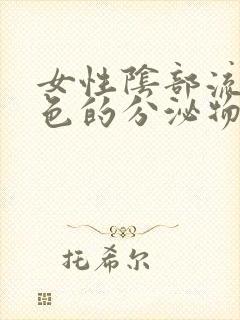 女性陰部流
色的分泌物
托希尔